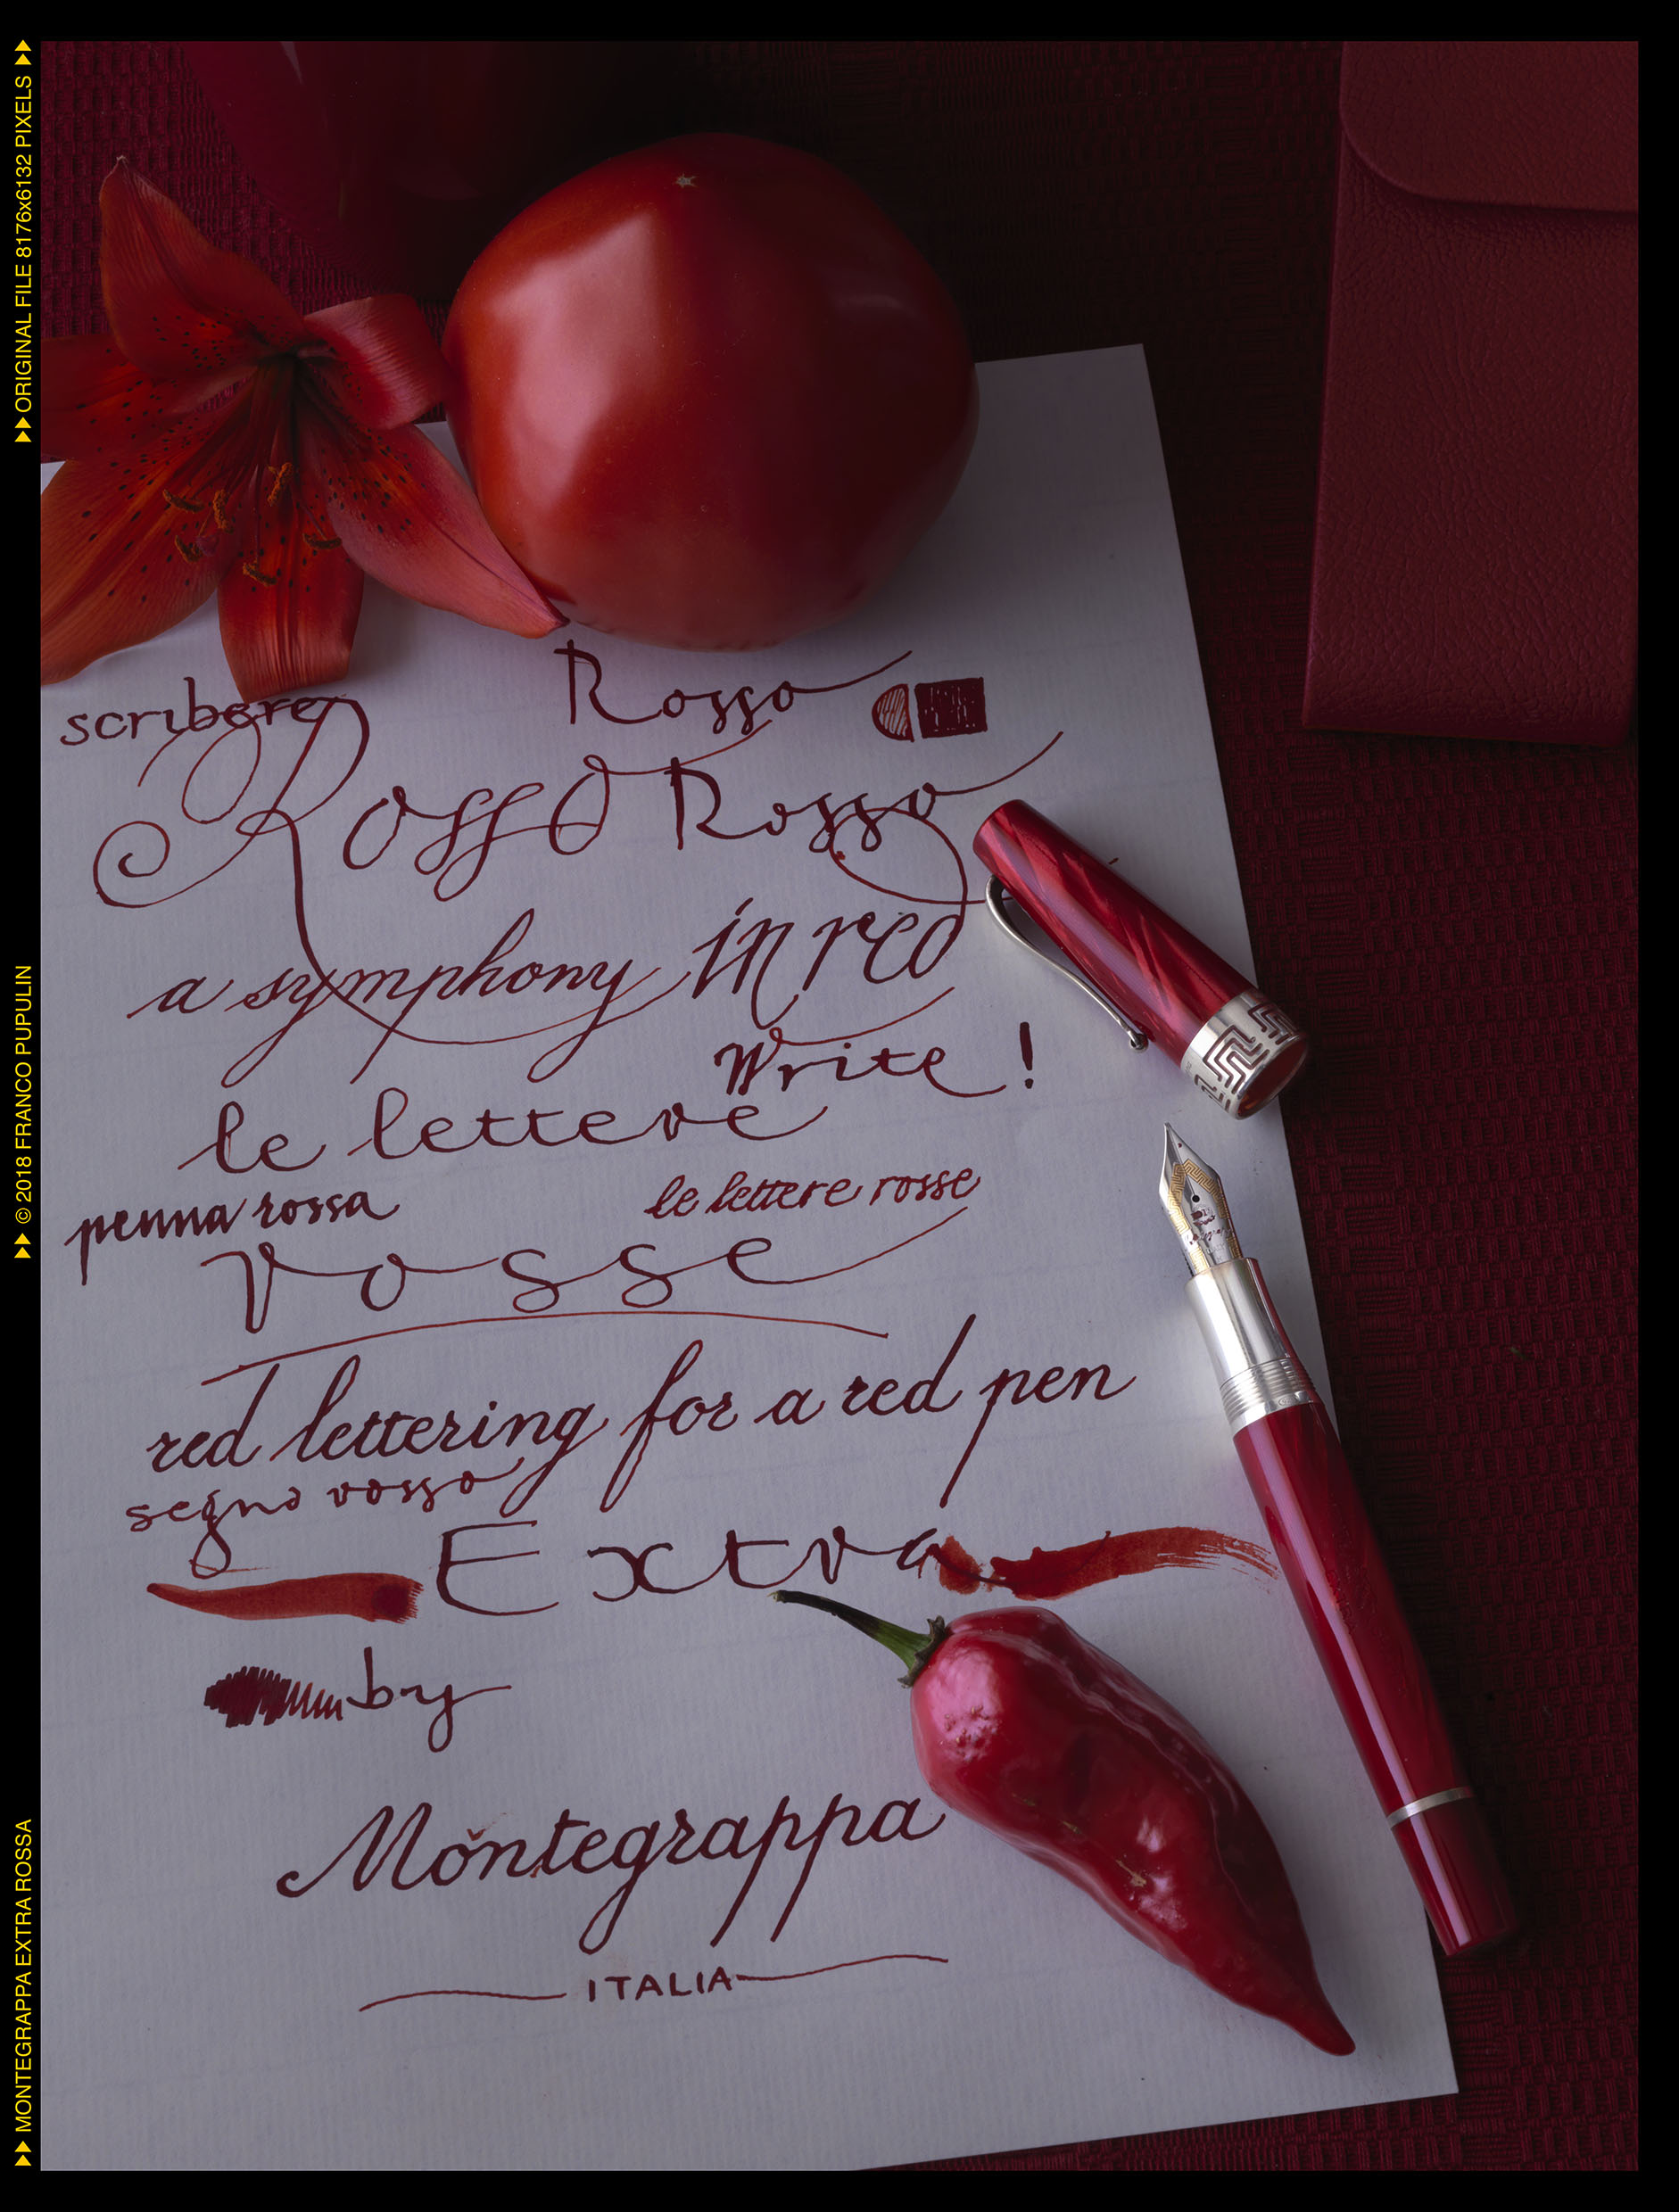 ▶▶ORIGINAL FILE 8176x6132 PIXELS ▶▶
▶▶ © 2018 FRANCO PUPULIN
▶▶ MONTEGRAPPA EXTRA ROSSA
scribere
Rosso
Rosso Rosso
a symphony in red
Write !
le lettere
penna rossa
le lettere rosse
rosse
red lettering for a red pen
segno rosso
Extra
by
Montegrappa
ITALIA